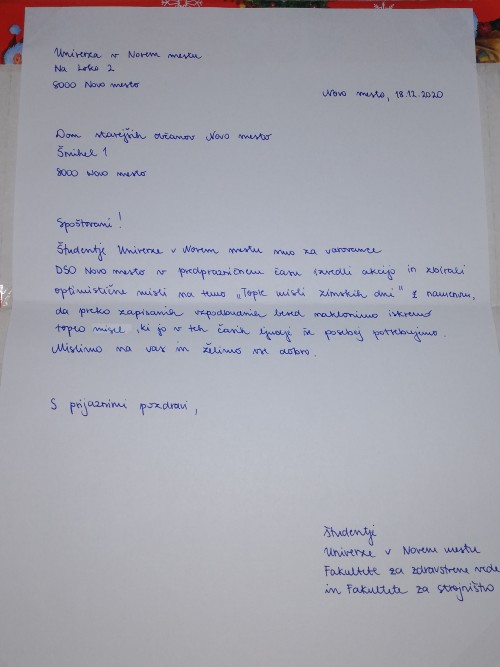 Univerza v Novem mestu
Na Loko 2
8000 Novo mesto
Novo mesto, 18.12.2020
Dom starejših občanov Novo mesto
Šmihel 1
8000 Novo mesto
Spoštovani!
Študentje Univerze v Novem mestu smo za varovance
DSO Novo mesto v predprazničnem času izvedli akcijo in zbirali
optimistične misli na temo „Tople misli zimskih dni“ z namenom,
da preko zapisanih vzpodbudnih besed naklonimo iskreno
toplo misel, ki jo v teh časih ljudje še posebej potrebujemo.
Mislimo na vas in želimo vse dobro.
S prijaznimi pozdravi,
Študentje
Univerze v Novem mestu
Fakultete za zdravstvene vede
in Fakultete za strojništvo